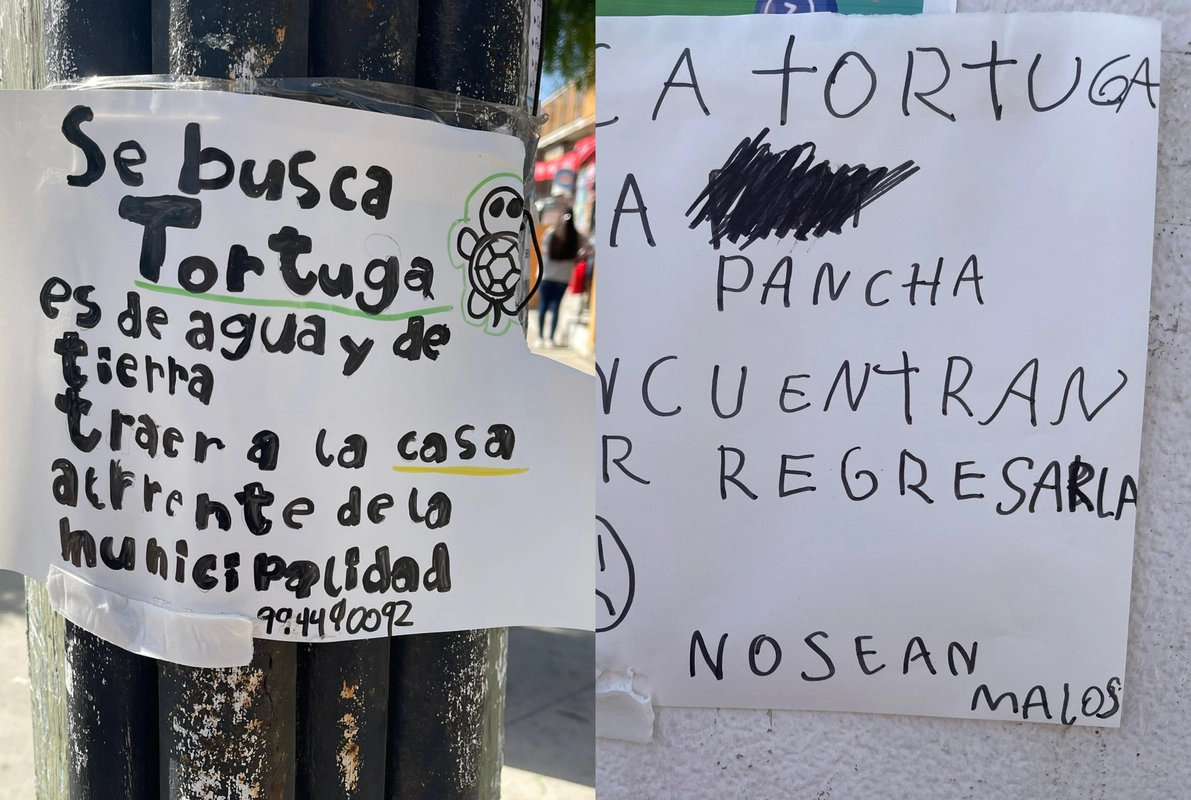 Se busca
Tortuga
es de agua y de
tierra
traer a la casa
de la
municipalidad
CA TORTUGA
A
PANCHA
NCUENTRAN
R REGRESARLA
NO SEAN
MALOS